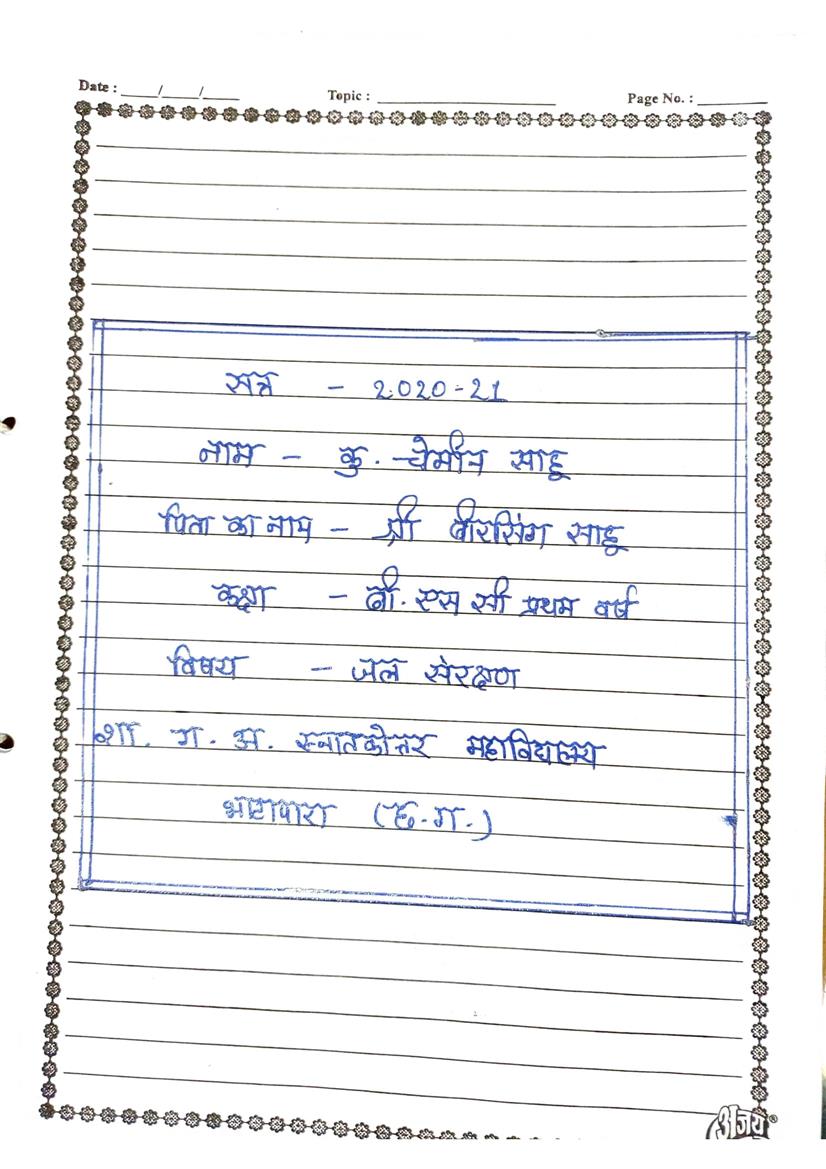 Date : ____/____/____ Topic : ____________ Page No. : ________
सत्र - 2020-21
नाम - कु. चेमीन साहू
पिता का नाम - श्री बीरसिंग साहू
कक्षा - बी. एस सी प्रथम वर्ष
विषय - जल संरक्षण
शा. ग. अ. स्नातकोत्तर महाविद्यालय
भाटापारा (छ.ग.)
अजय®